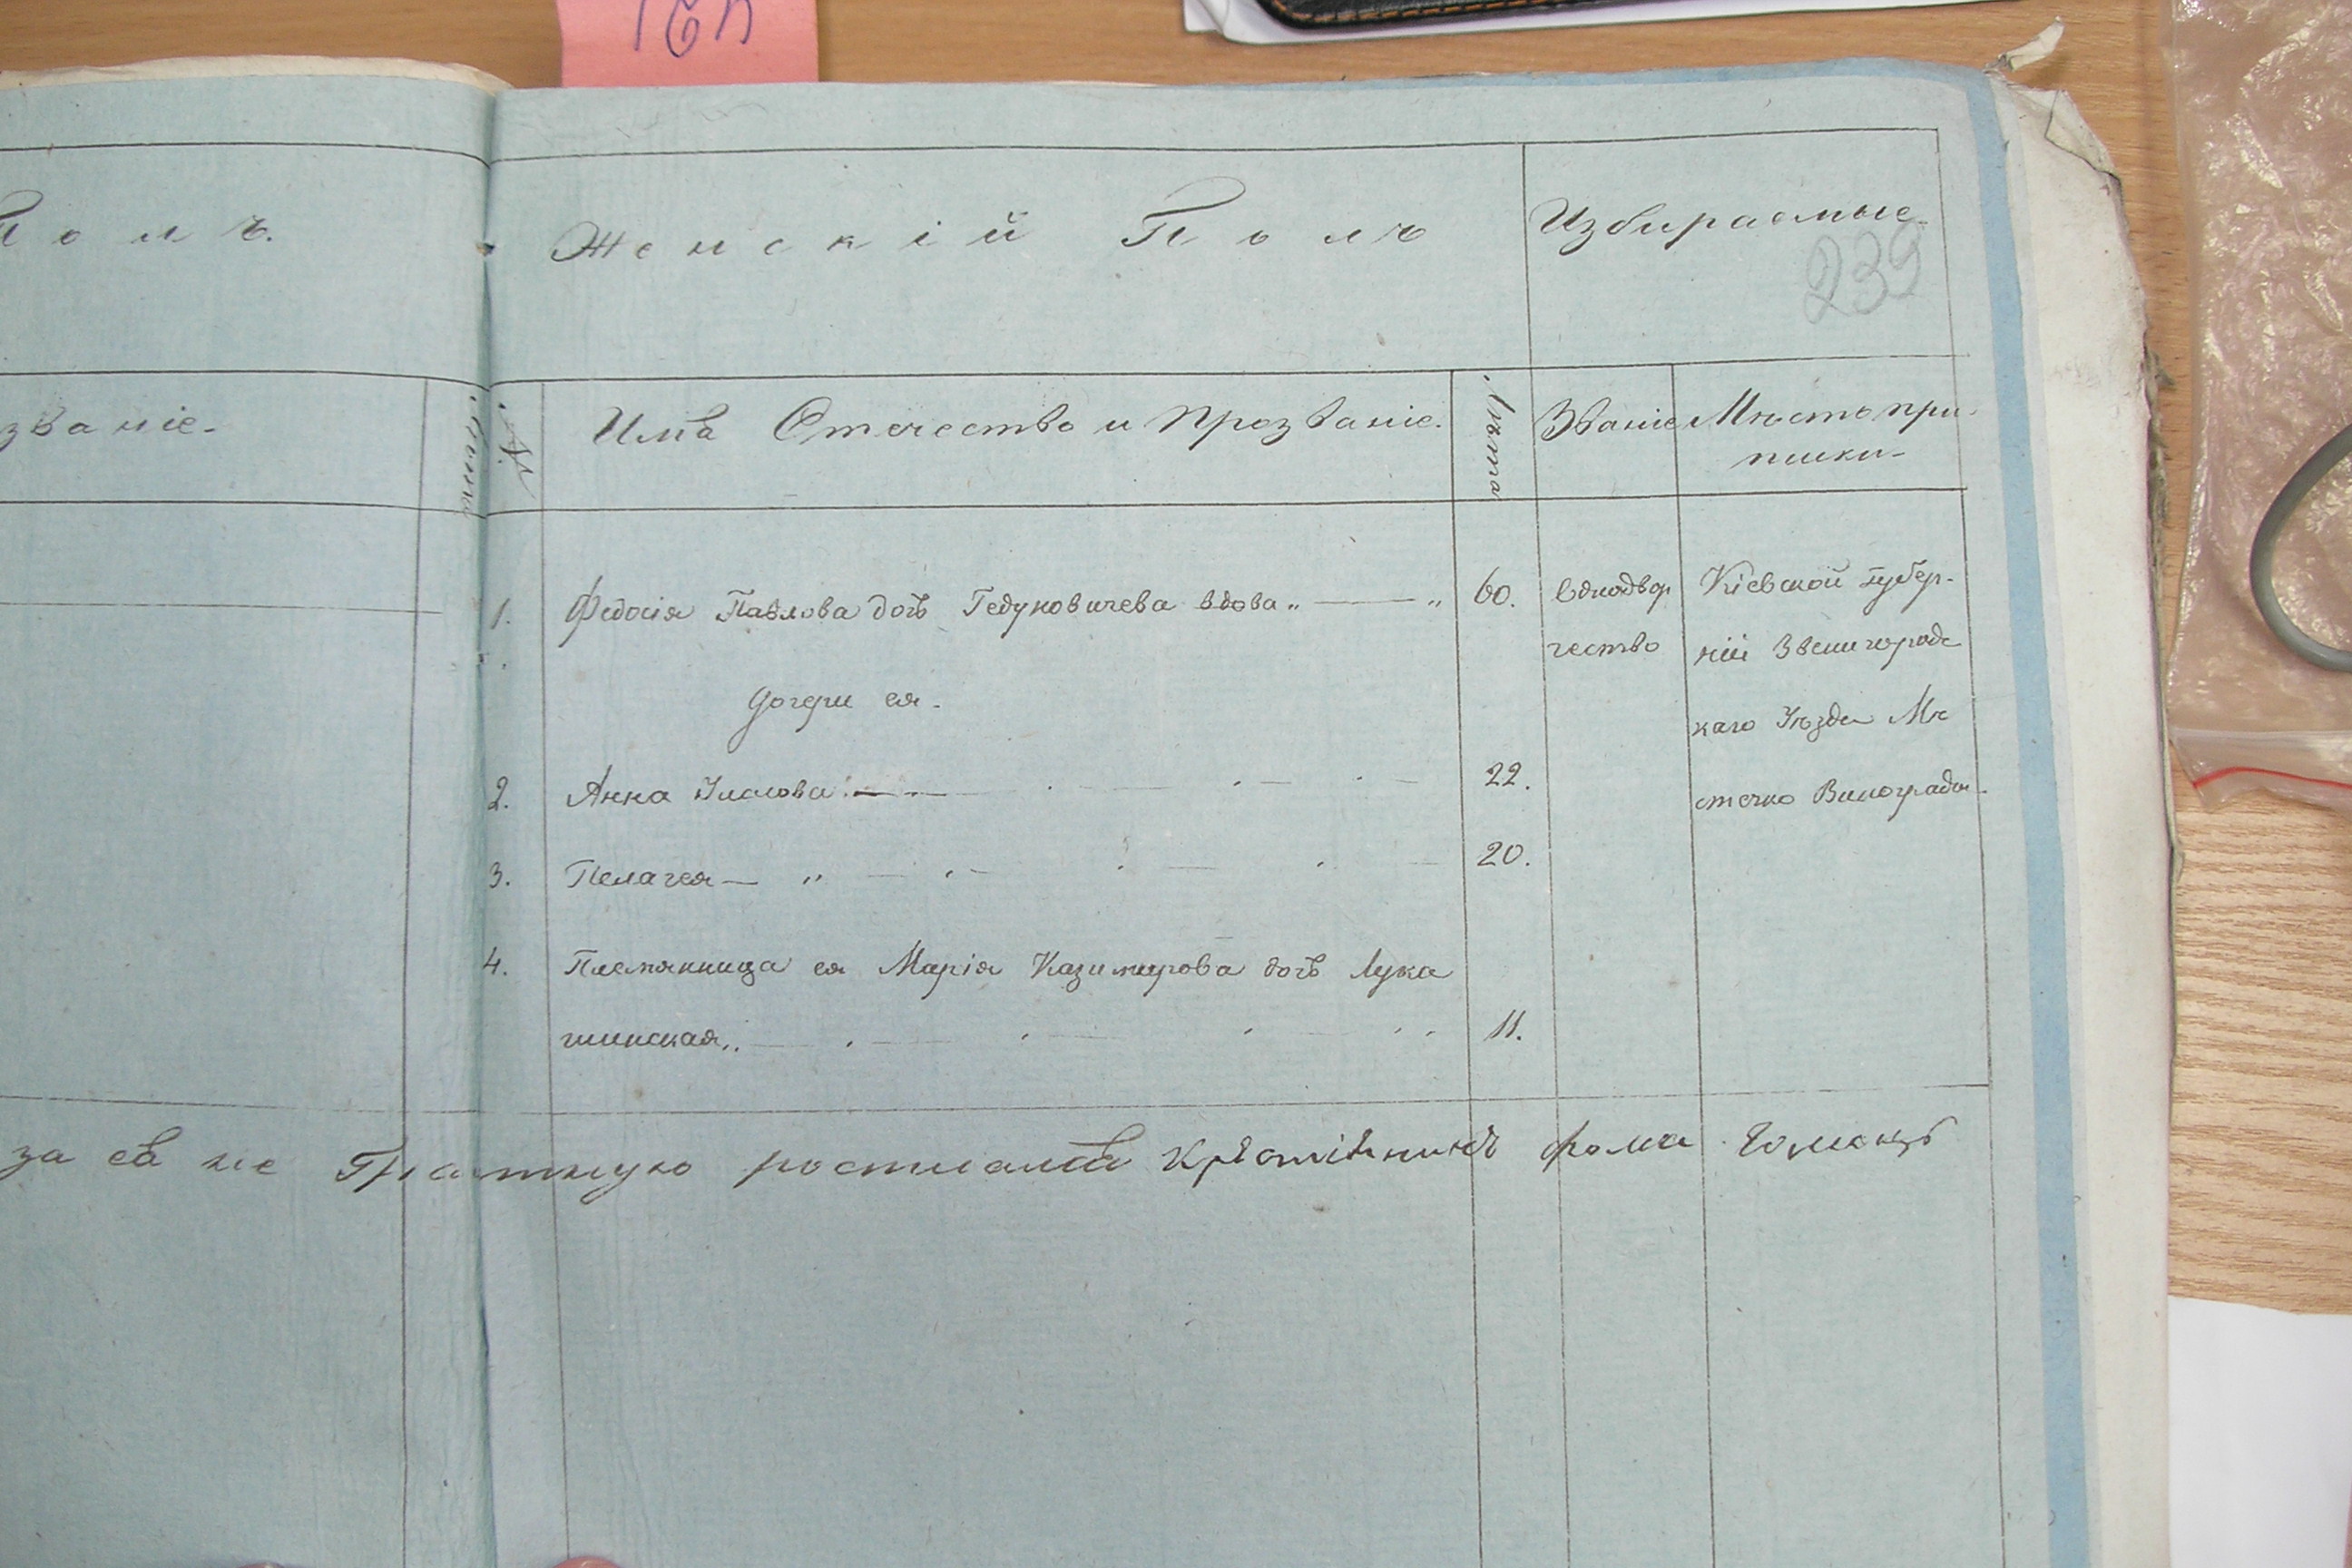 Полъ.
Женскій Полъ
Избираемые
239
званіе.
Лета
№
Имя Отечество и Прозваніе.
Лѣта
Званіе
Мѣсто при-
писки
1. Федосія Павлова дочь Гедуковичева вдова „ — „ 60.
Однодвор
чество
Кіевской губер-
ніи Звенигородс
каго Уѣзда Мѣ
стечко Виноградъ
Дочери ея.
2. Анна 22.
3. Пелагея — „ 20.
4. Племянница ея Марія Казимирова дочь Лука
шинская „ 11.
за ея не грамтную
Фома